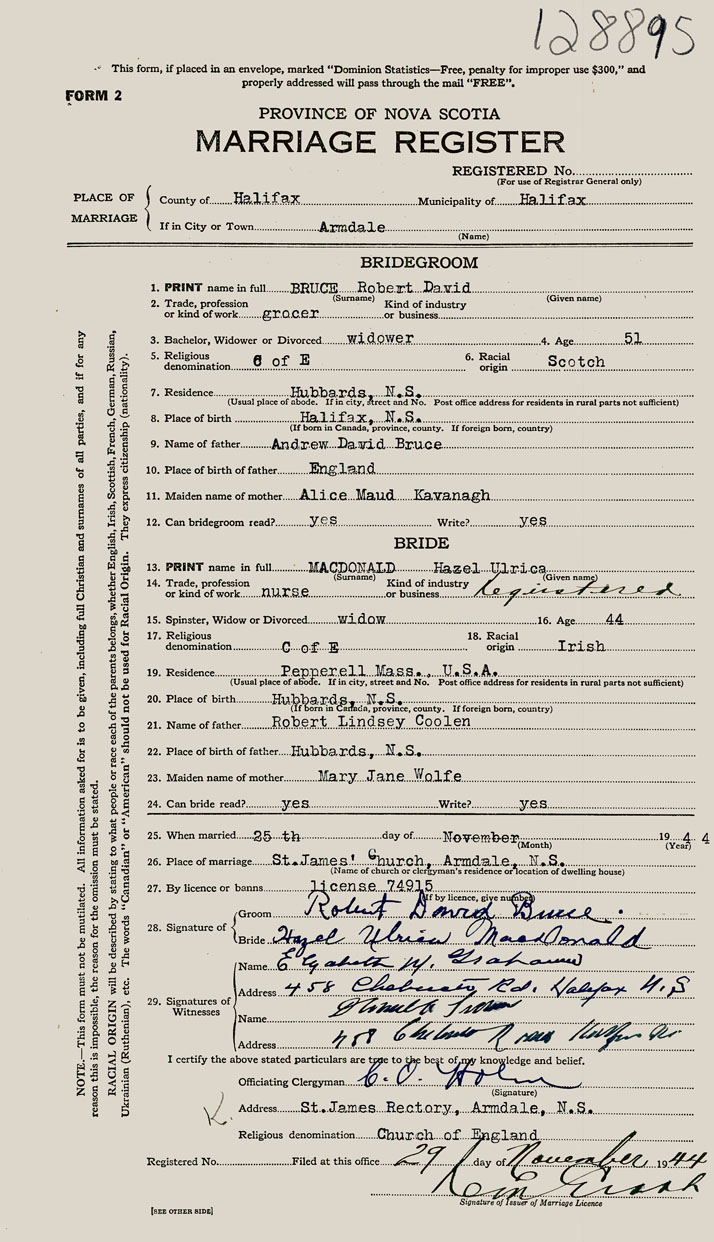 128895
This form, if placed in an envelope, marked "Dominion Statistics—Free, penalty for improper use $300," and
properly addressed will pass through the mail "FREE".
FORM 2
PROVINCE OF NOVA SCOTIA
MARRIAGE REGISTER
REGISTERED No.
(For use of Registrar General only)
PLACE OF MARRIAGE
County of Halifax Municipality of Halifax
If in City or Town Armdale
(Name)
BRIDEGROOM
1. PRINT name in full BRUCE Robert David
(Surname) (Given name)
2. Trade, profession or kind of work grocer Kind of industry or business
3. Bachelor, Widower or Divorced widower 4. Age 51
5. Religious denomination C of E 6. Racial origin Scotch
7. Residence Hubbards, N.S.
(Usual place of abode. If in city, street and No. Post office address for residents in rural parts not sufficient)
8. Place of birth Halifax, N.S.
(If born in Canada, province, county. If foreign born, country)
9. Name of father Andrew David Bruce
10. Place of birth of father England
11. Maiden name of mother Alice Maud Kavanagh
12. Can bridegroom read? yes Write? yes
BRIDE
13. PRINT name in full MACDONALD Hazel Ulrica
(Surname) (Given name)
14. Trade, profession or kind of work nurse Kind of industry or business Registered
15. Spinster, Widow or Divorced widow 16. Age 44
17. Religious denomination C of E 18. Racial origin Irish
19. Residence Pepperell Mass., U.S.A.
(Usual place of abode. If in city, street and No. Post office address for residents in rural parts not sufficient)
20. Place of birth Hubbards, N.S.
(If born in Canada, province, county. If foreign born, country)
21. Name of father Robert Lindsey Coolen
22. Place of birth of father Hubbards, N.S.
23. Maiden name of mother Mary Jane Wolfe
24. Can bride read? yes Write? yes
25. When married 25 th day of November 19 4 4
(Month) (Year)
26. Place of marriage St.James' Church, Armdale, N.S.
(Name of church or clergyman's residence or location of dwelling house)
27. By licence or banns license 74915
(If by licence, give number)
28. Signature of
Groom Robert David Bruce.
Bride Hazel Ulrica MacDonald
29. Signatures of Witnesses
Name Elizabeth M. Graham
Address 458 Chebucto Rd. Halifax N.S
Name
Address 458 Chebucto Road Halifax NS
I certify the above stated particulars are true to the best of my knowledge and belief.
Officiating Clergyman
(Signature)
Address St.James Rectory, Armdale, N.S.
Religious denomination Church of England
Registered No. Filed at this office 29 day of November 1944
Signature of Issuer of Marriage Licence
[SEE OTHER SIDE]
NOTE.—This form must not be mutilated. All information asked for is to be given, including full Christian and surnames of all parties, and if for any
reason this is impossible, the reason for the omission must be stated.
RACIAL ORIGIN will be described by stating to what people or race each of the parents belongs, whether English, Irish, Scottish, French, German, Russian,
Ukrainian (Ruthenian), etc. The words "Canadian" or "American" should not be used for Racial Origin. They express citizenship (nationality).